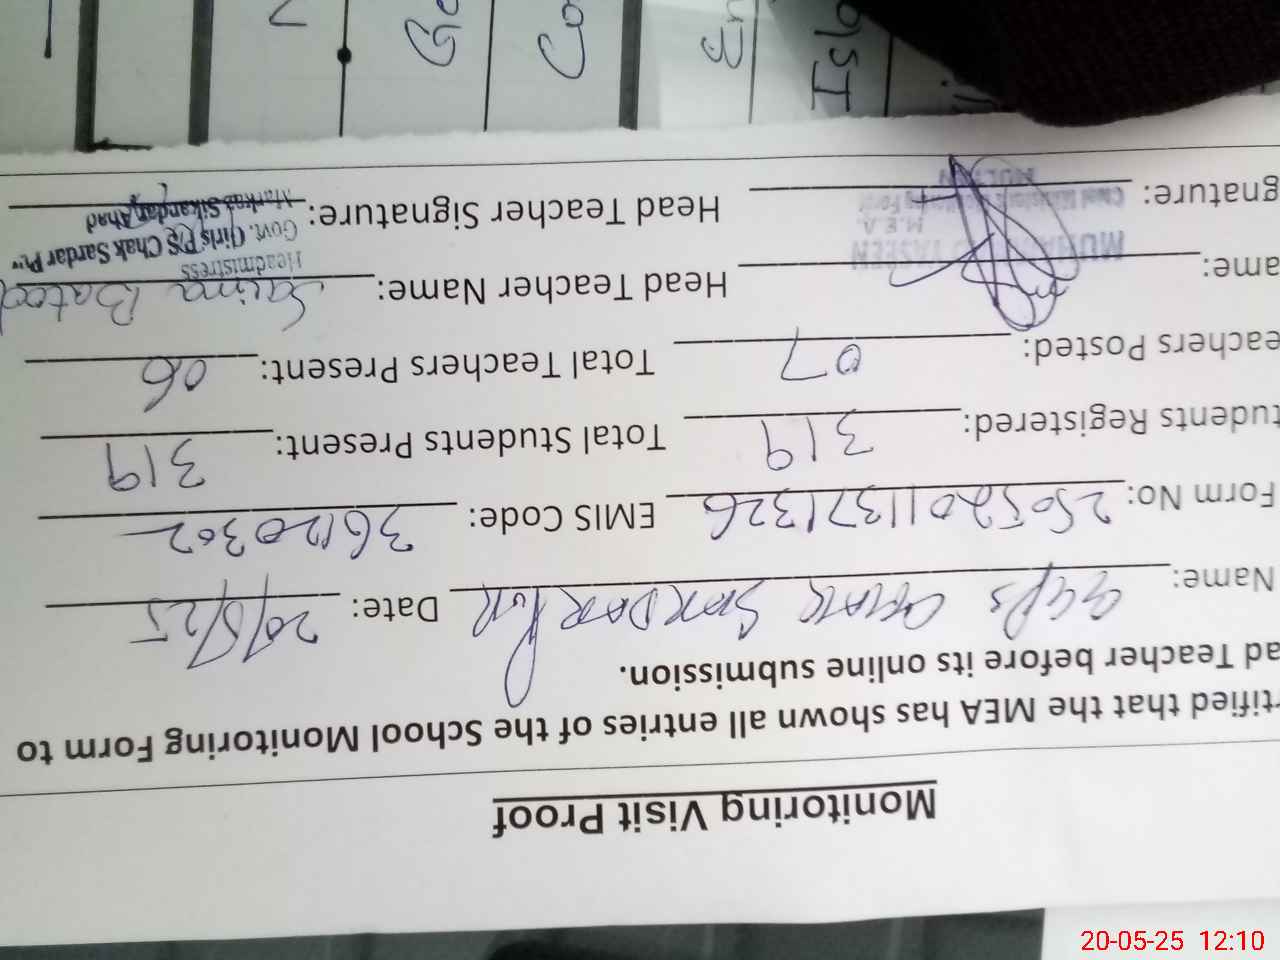 Monitoring Visit Proof
rtified that the MEA has shown all entries of the School Monitoring Form to
ad Teacher before its online submission.
Name: GGPS CHAK SARDAR PUR Date: 20/5/25
Form No: 25052011371326 EMIS Code: 36120302
tudents Registered: 319 Total Students Present: 319
eachers Posted: 07 Total Teachers Present: 06
ame: Head Teacher Name: Saima Batool
gnature: Head Teacher Signature:
Headmistress
Govt. Girls P/S Chak Sardar Pur
Markaz Sikandar Abad
M.E.A
MULTAN
20-05-25 12:10